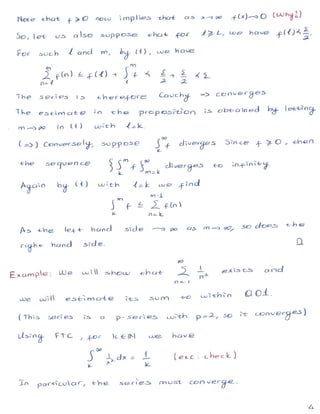 Note that f ≥ 0 now implies that as x→∞ f(x)→0 (Why?)
So, let us also suppose that for l ≥ L, we have f(l) < ε/2.
For such l and m, by (1), we have
∑_{n=l}^{m} f(n) ≤ f(l) + ∫_l^m f < ε/2 + ε/2 < ε
The series is therefore Cauchy ⇒ converges
The estimate in the proposition is obtained by letting
m→∞ in (1) with l=k.
(⇒) Conversely, suppose ∫_k^∞ f diverges. Since f ≥ 0, then
the sequence {∫_k^m f}_{m=k}^∞ diverges to infinity.
Again by (1) with l=k we find
∫_k^m f ≤ ∑_{n=k}^{m-1} f(n)
As the left hand side → ∞ as m→∞, so does the
right hand side. □
Example: We will show that ∑_{n=1}^∞ 1/n² exists and
we will estimate its sum to within 0.01.
(This series is a p-series with p=2, so it converges)
Using FTC, for k∈ℕ we have
∫_k^∞ 1/x² dx = 1/k (exc. check)
In particular, the series must converge.